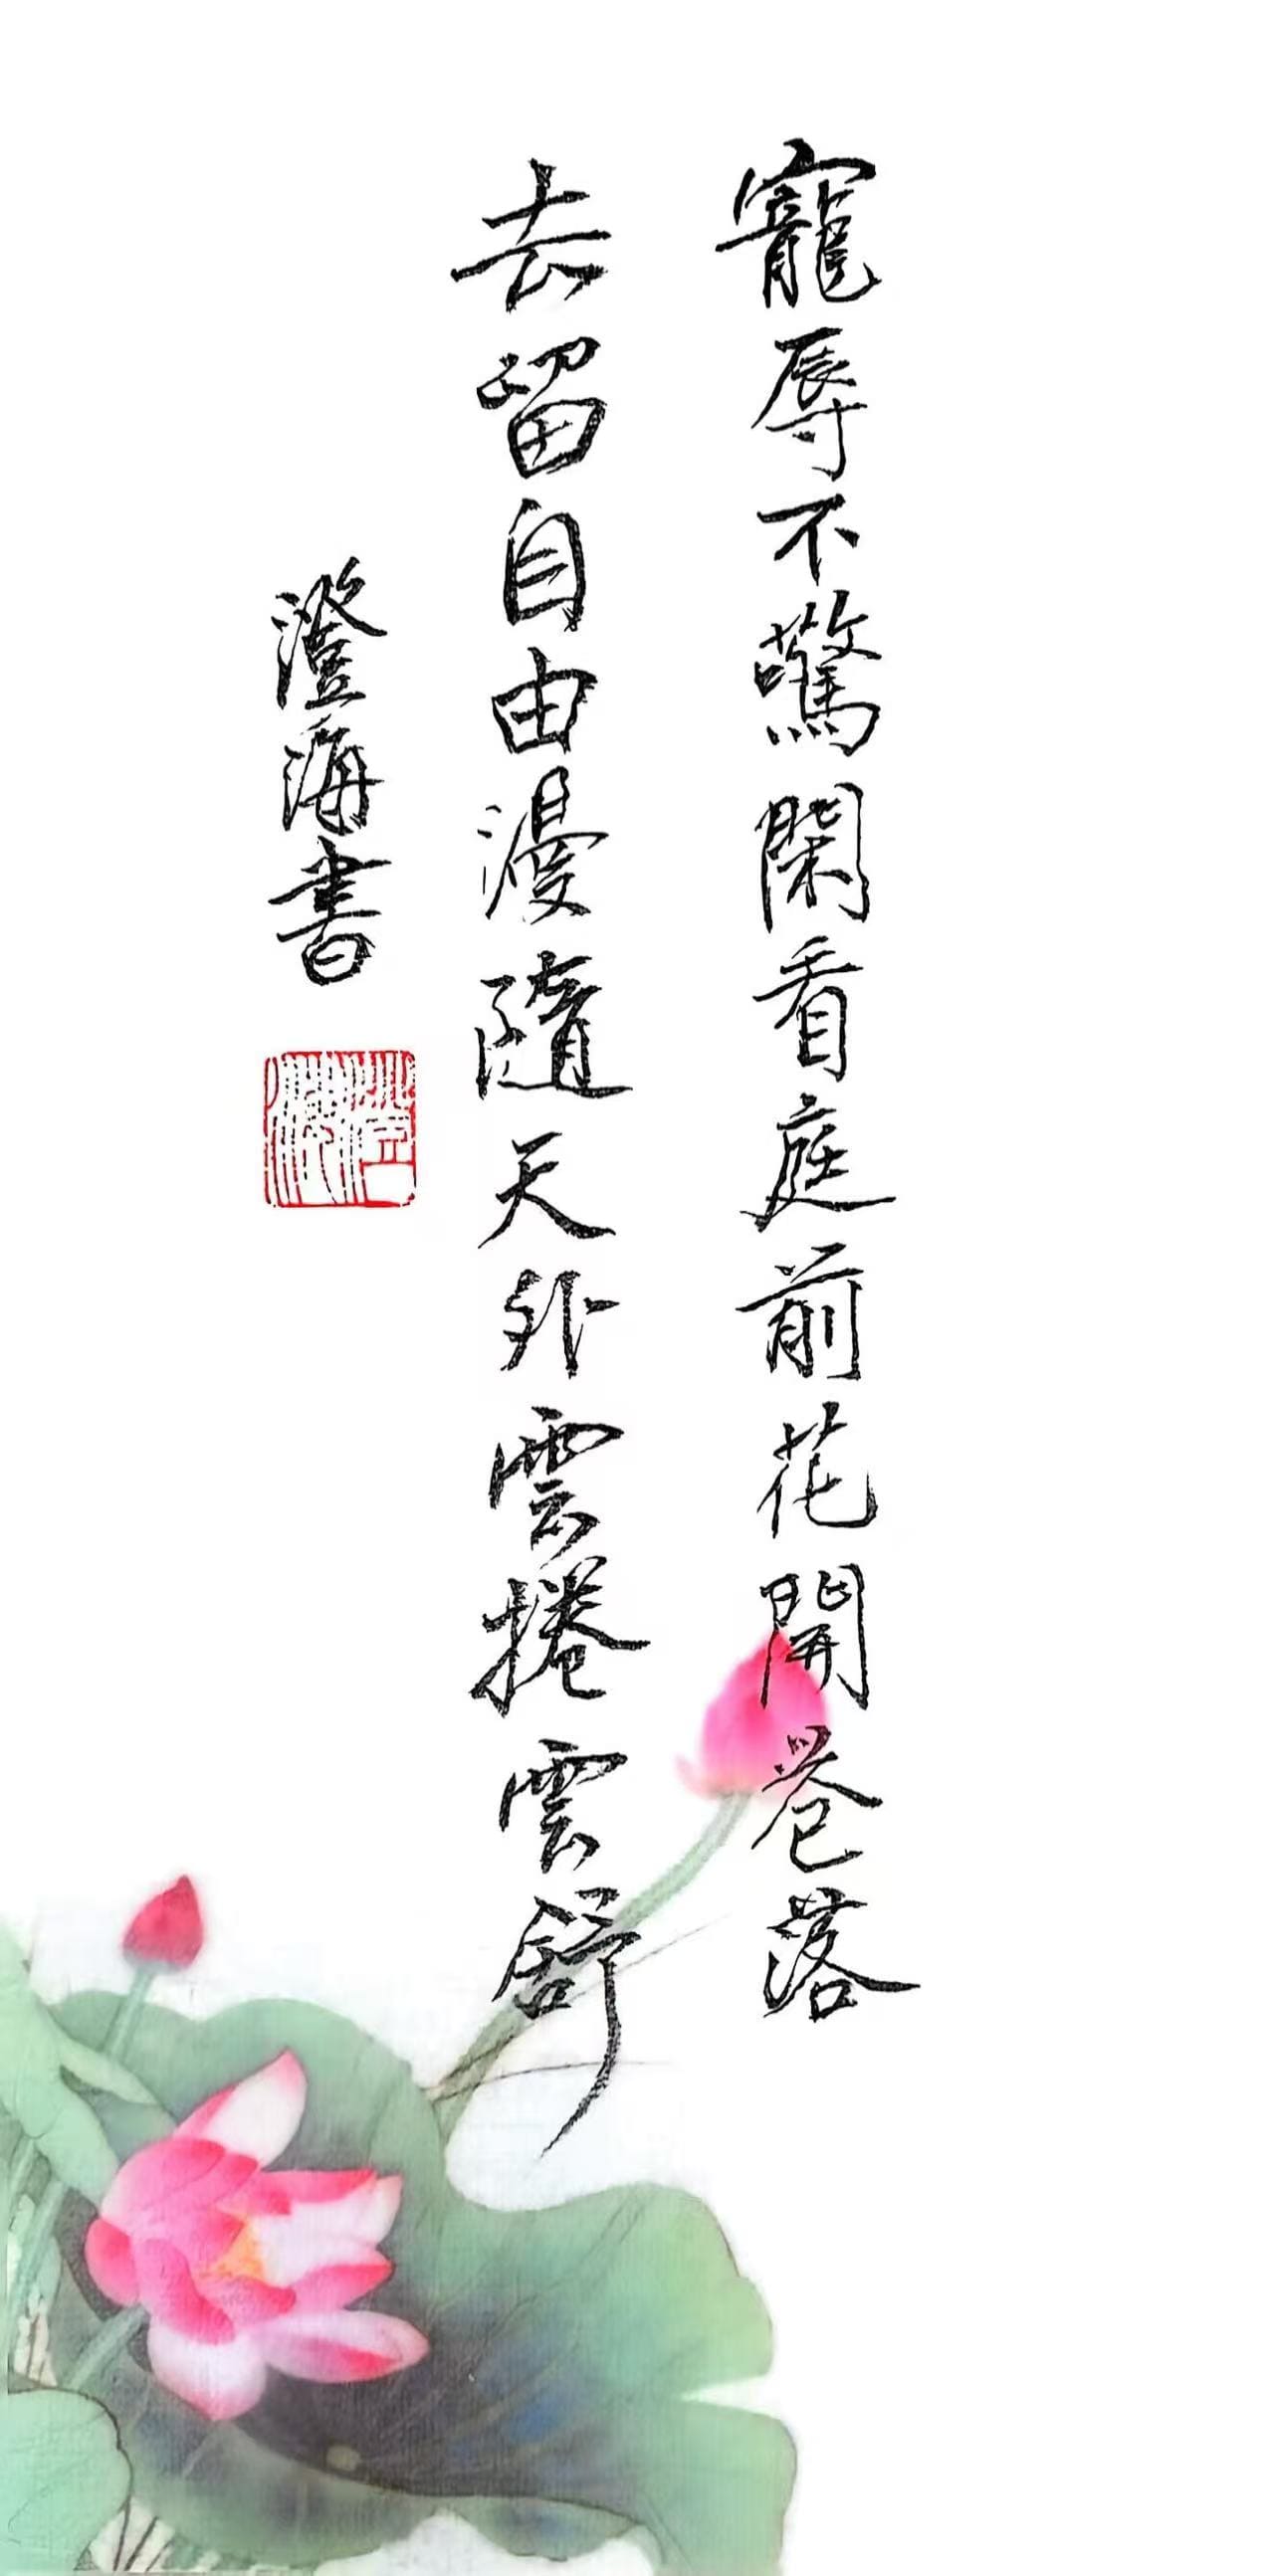 寵辱不驚閑看庭前花開花落
去留自由漫隨天外雲捲雲舒
澄海書
澄海